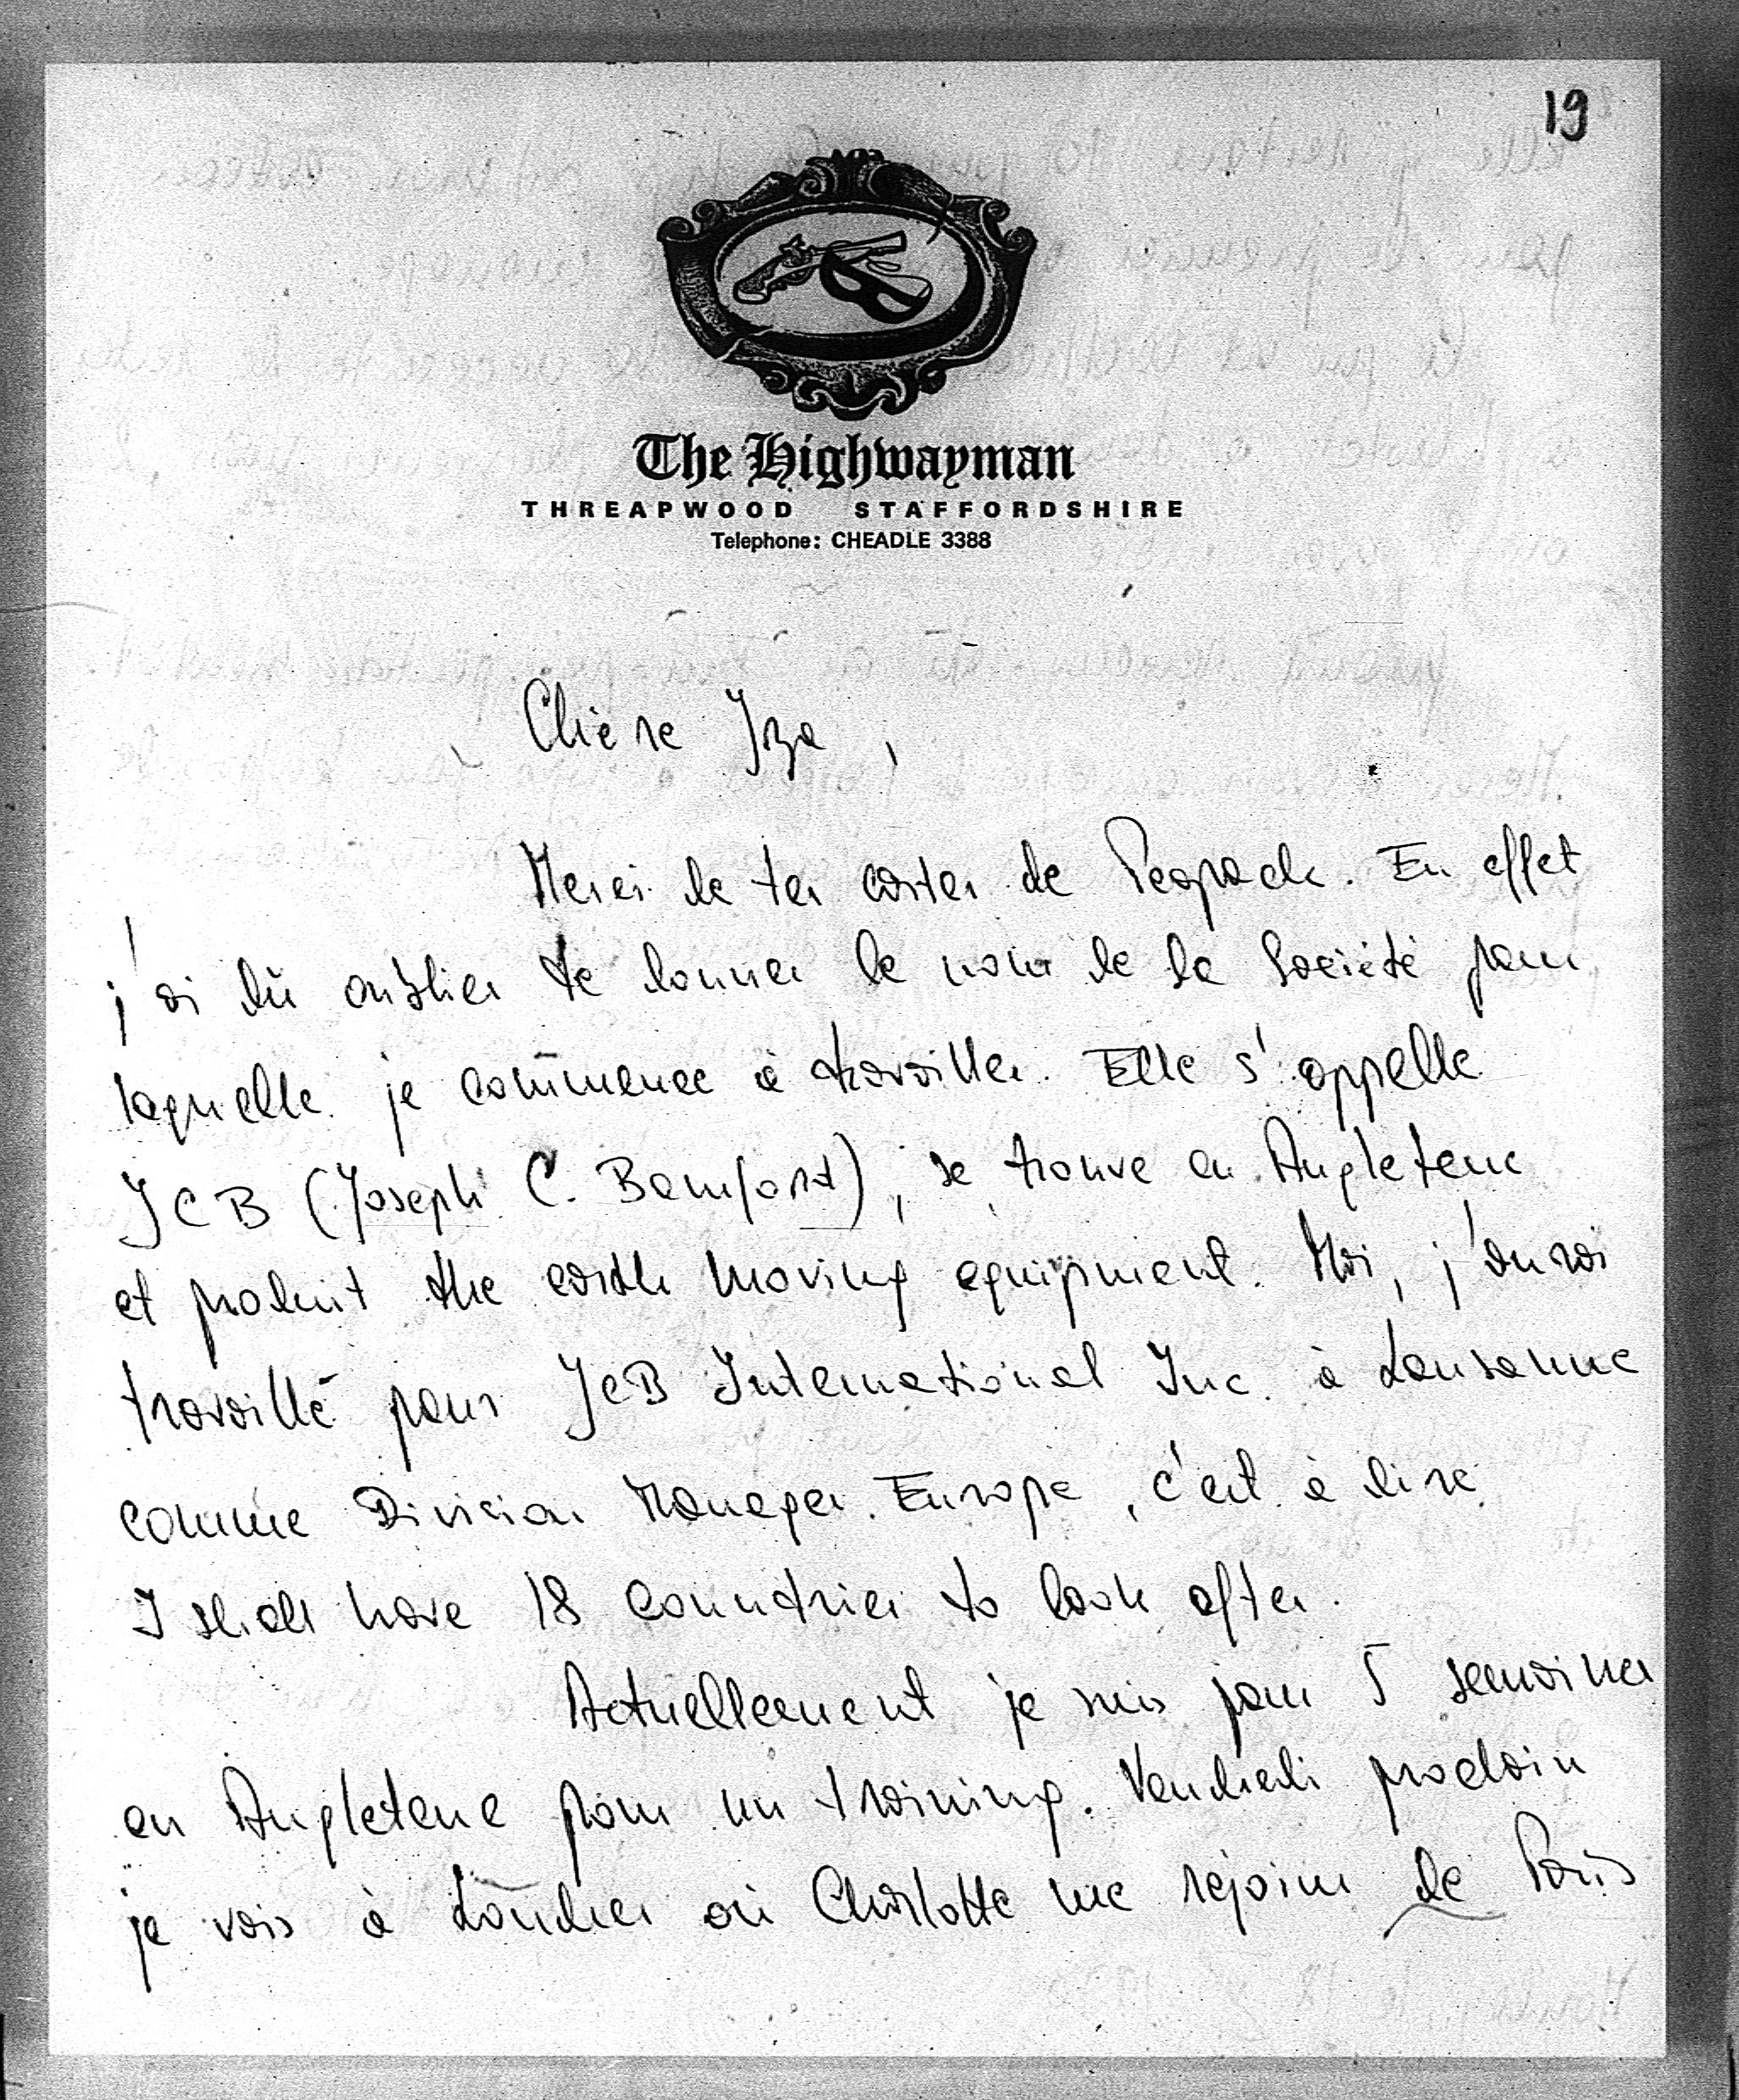 19
The Highwayman
THREAPWOOD STAFFORDSHIRE
Telephone: CHEADLE 3388
Chère Iza,
Merci de tes cartes de Peapack. En effet
j'ai dû oublier te donner le nom de la Société pour
laquelle je commence à travailler. Elle s'appelle
JCB (Joseph C. Bamford), se trouve en Angleterre
et produit the earth moving equipment. Moi, j'aurai
travaillé pour JCB International Inc. à Lausanne
comme Division Manager Europe, c'est à dire
I shall have 18 countries to look after.
Actuellement je suis pour 5 semaines
en Angleterre pour un training. Vendredi prochain
je vais à Londres où Charlotte me rejoins de Paris